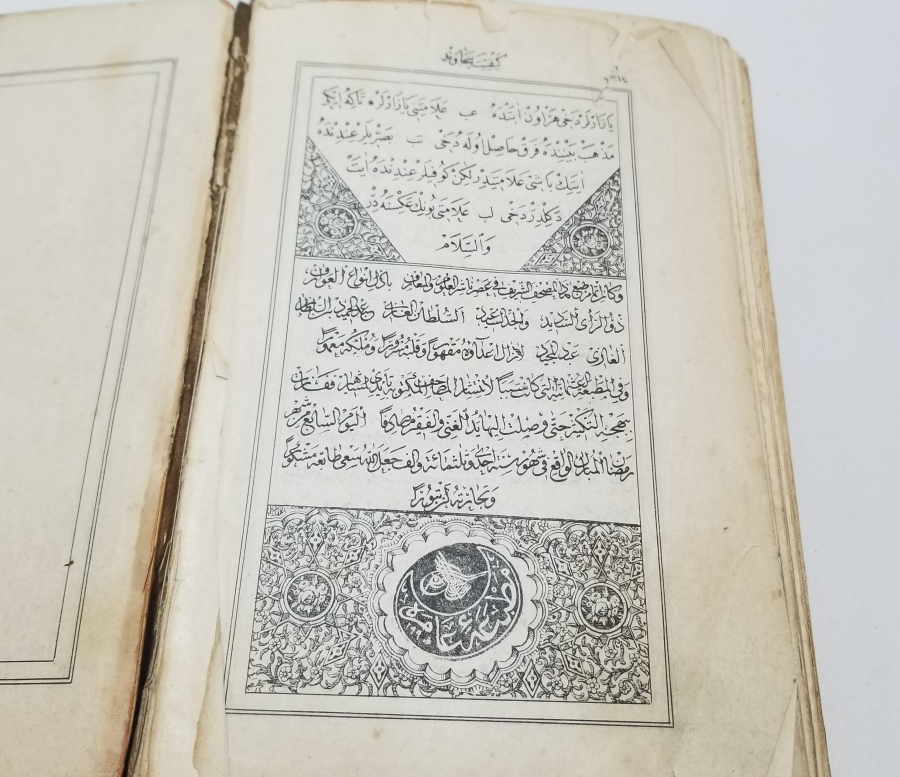 كيفيت سجاوند
يازارلر دخى هر اون ايتده عب علامتنى يازارلر تاكه ايكى
مذهب بيننده فرق حاصل اوله دخى تب بصريلر عندنده
ايتك باشى علامتيدر لكن كوفيلر عندنده ايت
دكلدر دخى لب علامتى بونك عكسنه در
والسلام
وكان اتمام طبع هذا المصحف الشريف في عصر ناشر العلوم والمعارف باذل انواع العوارف
ذو الرأى السديد والجد السعيد السلطان الغازى عبد الحميد بن السلطان
الغازى عبد المجيد لازال اعداؤه مقهورا وقلبه مسرورا وملكه معمورا
وفى المطبعة العثمانية التى كانت سببا لانتشار المصاحف المكتوبة بايدى المشاهير
التكثير حتى وصلت اليها يد الغنى والفقير صادفا اليوم السابع من شهر
رمضان المبارك الواقع فى شهور سنة احدى وثلثمائة والف جعل الله سعى طابعه مشكورا
وتجارته لن تبورا
مطبعه عثمانيه